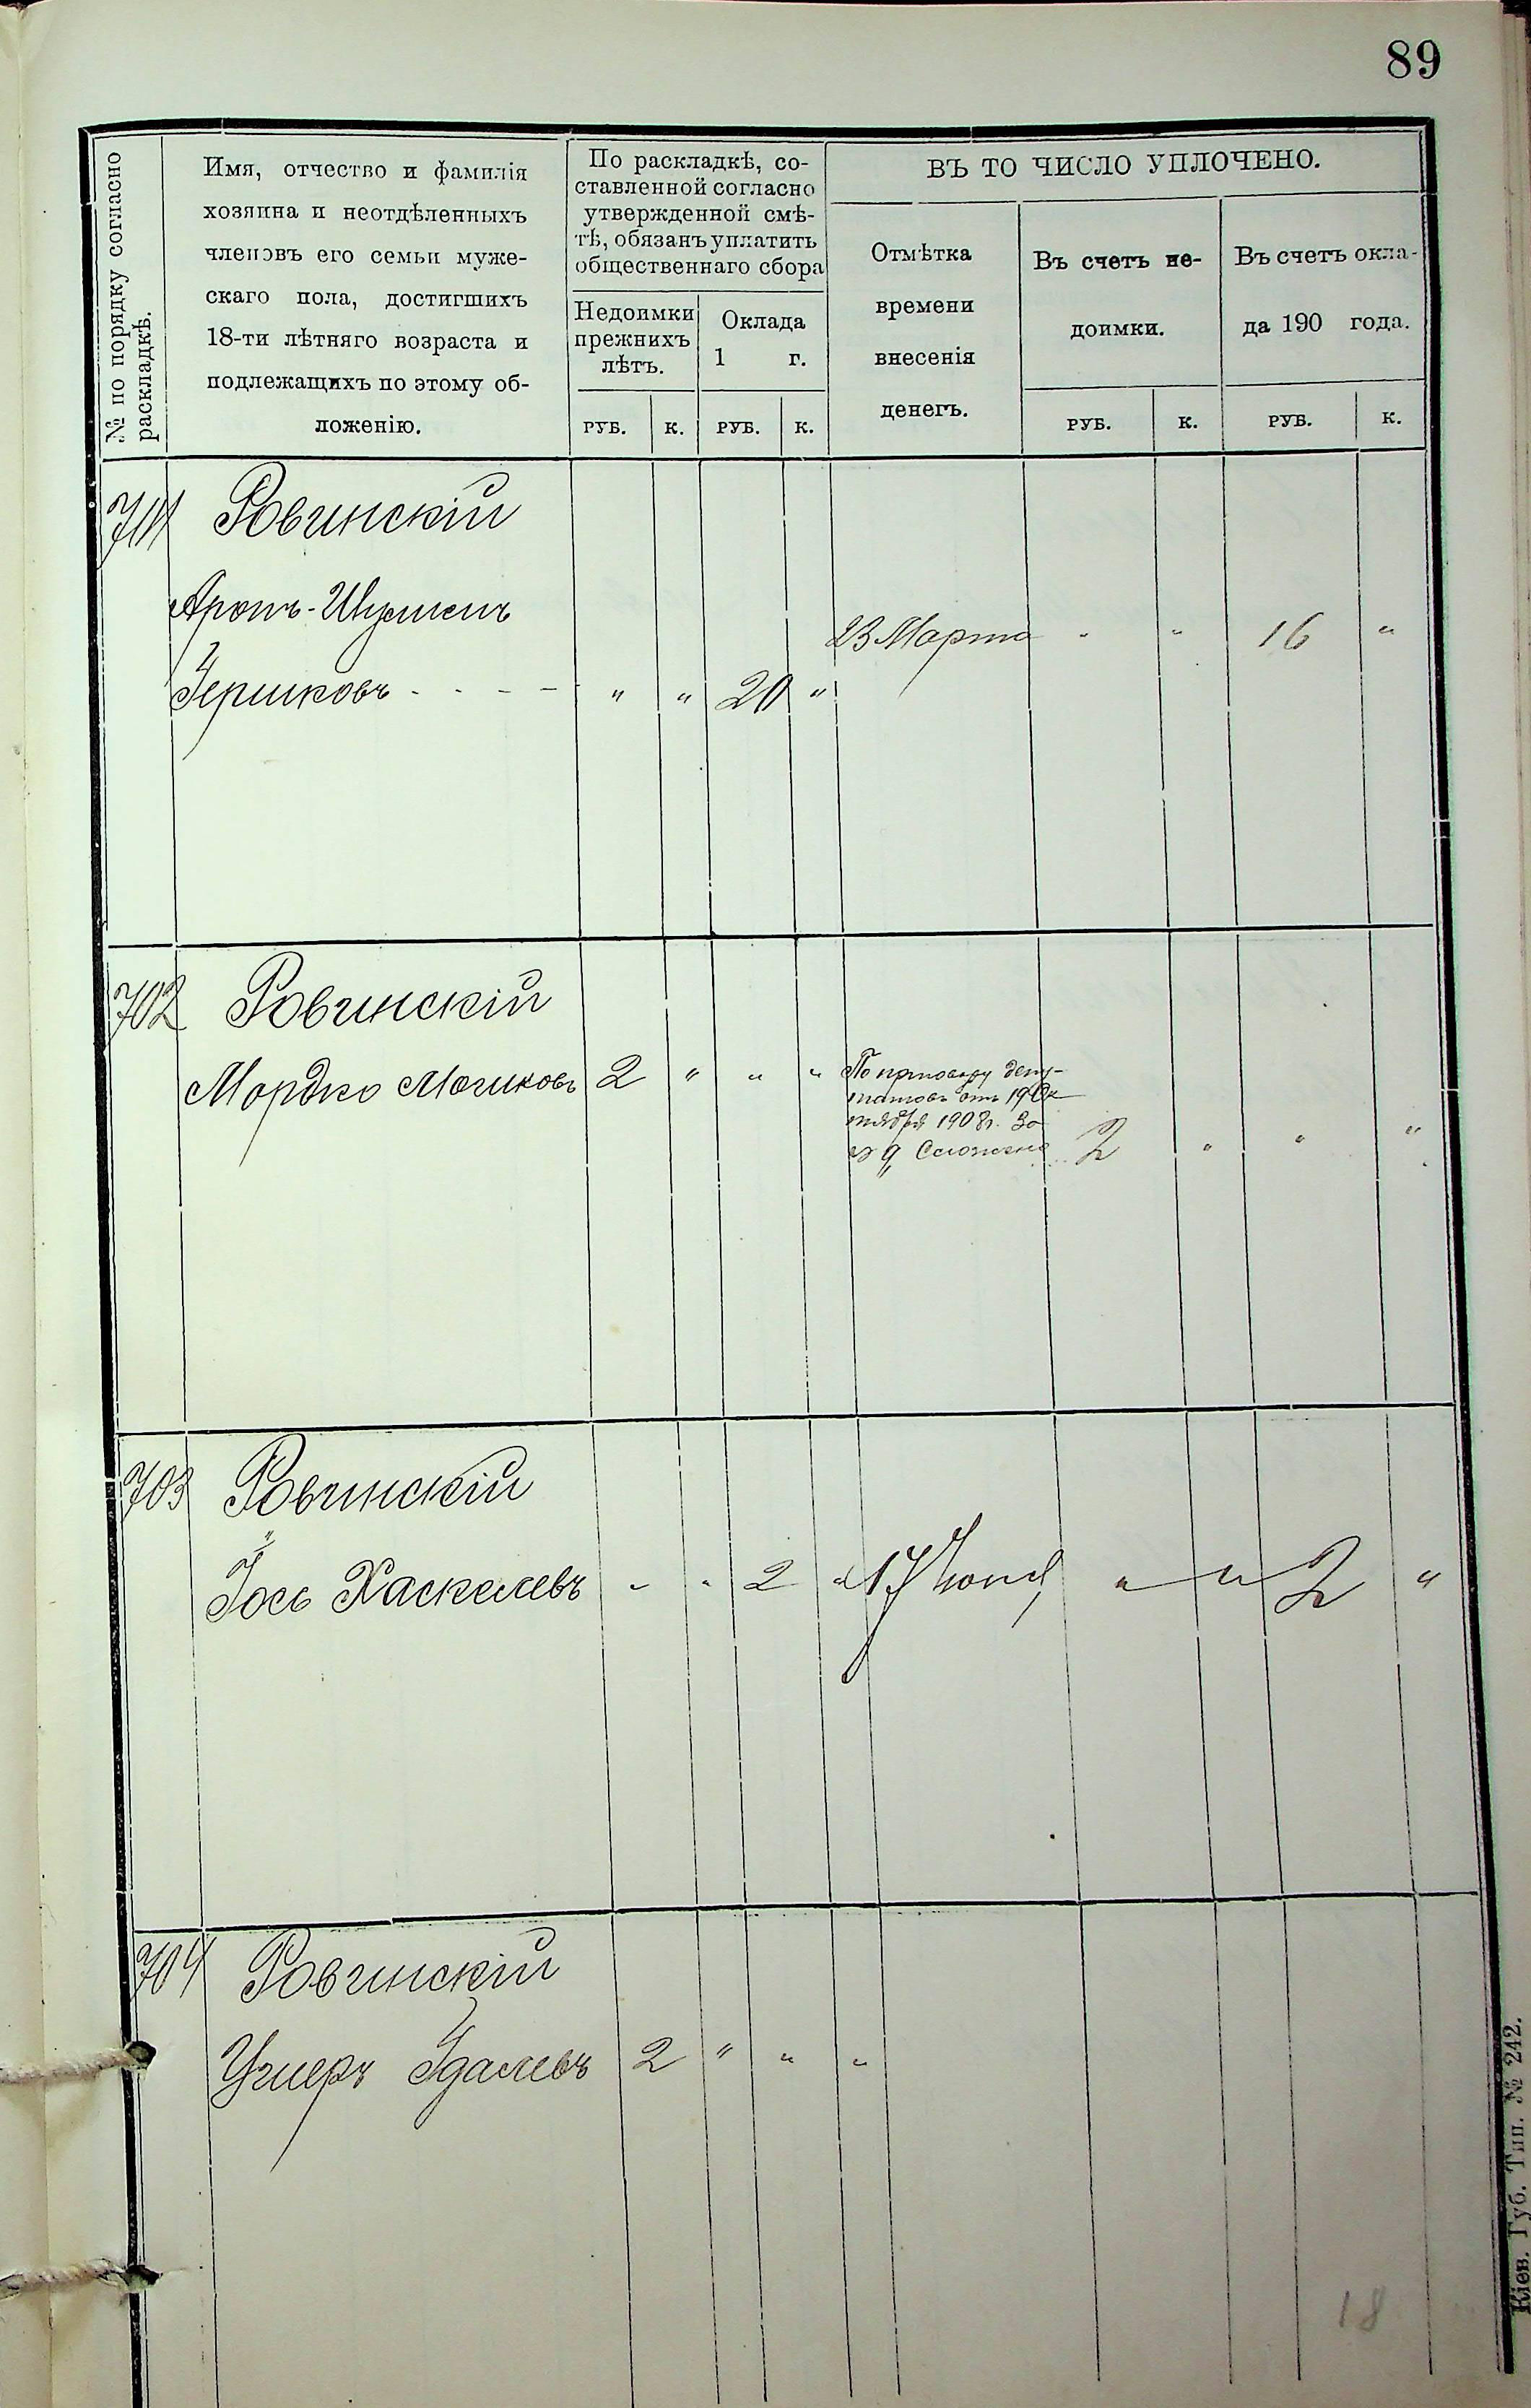 89
№ по порядку согласно
раскладкѣ.
Имя, отчество и фамилія
хозяина и неотдѣленныхъ
членовъ его семьи муже-
скаго пола, достигшихъ
18-ти лѣтняго возраста и
подлежащихъ по этому об-
ложенію.
По раскладкѣ, со-
ставленной согласно
утвержденной смѣ-
тѣ, обязанъ уплатить
общественнаго сбора
Недоимки
прежнихъ
лѣтъ.
Оклада
1 г.
РУБ. К. РУБ. К.
ВЪ ТО ЧИСЛО УПЛОЧЕНО.
Отмѣтка
времени
внесенія
денегъ.
Въ счетъ не-
доимки.
РУБ. К.
Въ счетъ окла-
да 190 года.
РУБ. К.
701 Ровинскій
Аронъ-Шулимъ
23 Марта " " 16 "
Гершковъ - - - - " " 20 "
702 Ровинскій
Мордко Мошковъ 2 " " " По приговору депу-
татовъ отъ 19 Ок
тября 1908 г. за
№ 9 Сложено 2 " " "
703 Ровинскій
Іось Хаскелевъ " " 2 " 17 Іюня " " 2 "
704 Ровинскій
Ушеръ Удалевъ 2 " " "
18
Кіев. Губ. Тип. № 242.